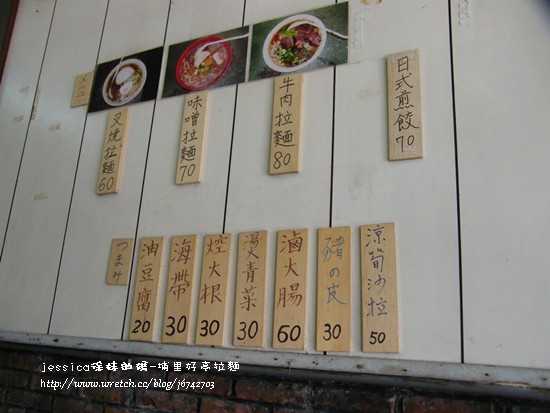 叉燒拉麵60
味噌拉麵70
牛肉拉麵80
日式煎餃70
つまみ
油豆腐20
海帶30
焢大根30
燙青菜30
滷大腸60
豬の皮30
涼筍沙拉50
http://www.wretch.cc/blog/j6742703